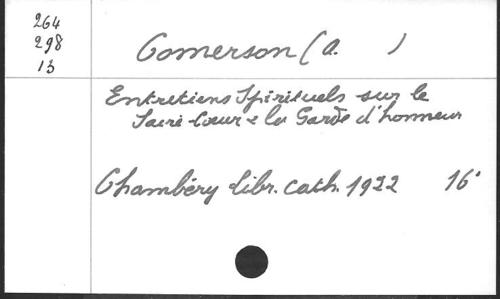 264
298
13
Gomerson (A. )
Entretiens Spirituels sur le
Sacré-Cœur & la Garde d'honneur
Chambéry libr. cath. 1922 16°